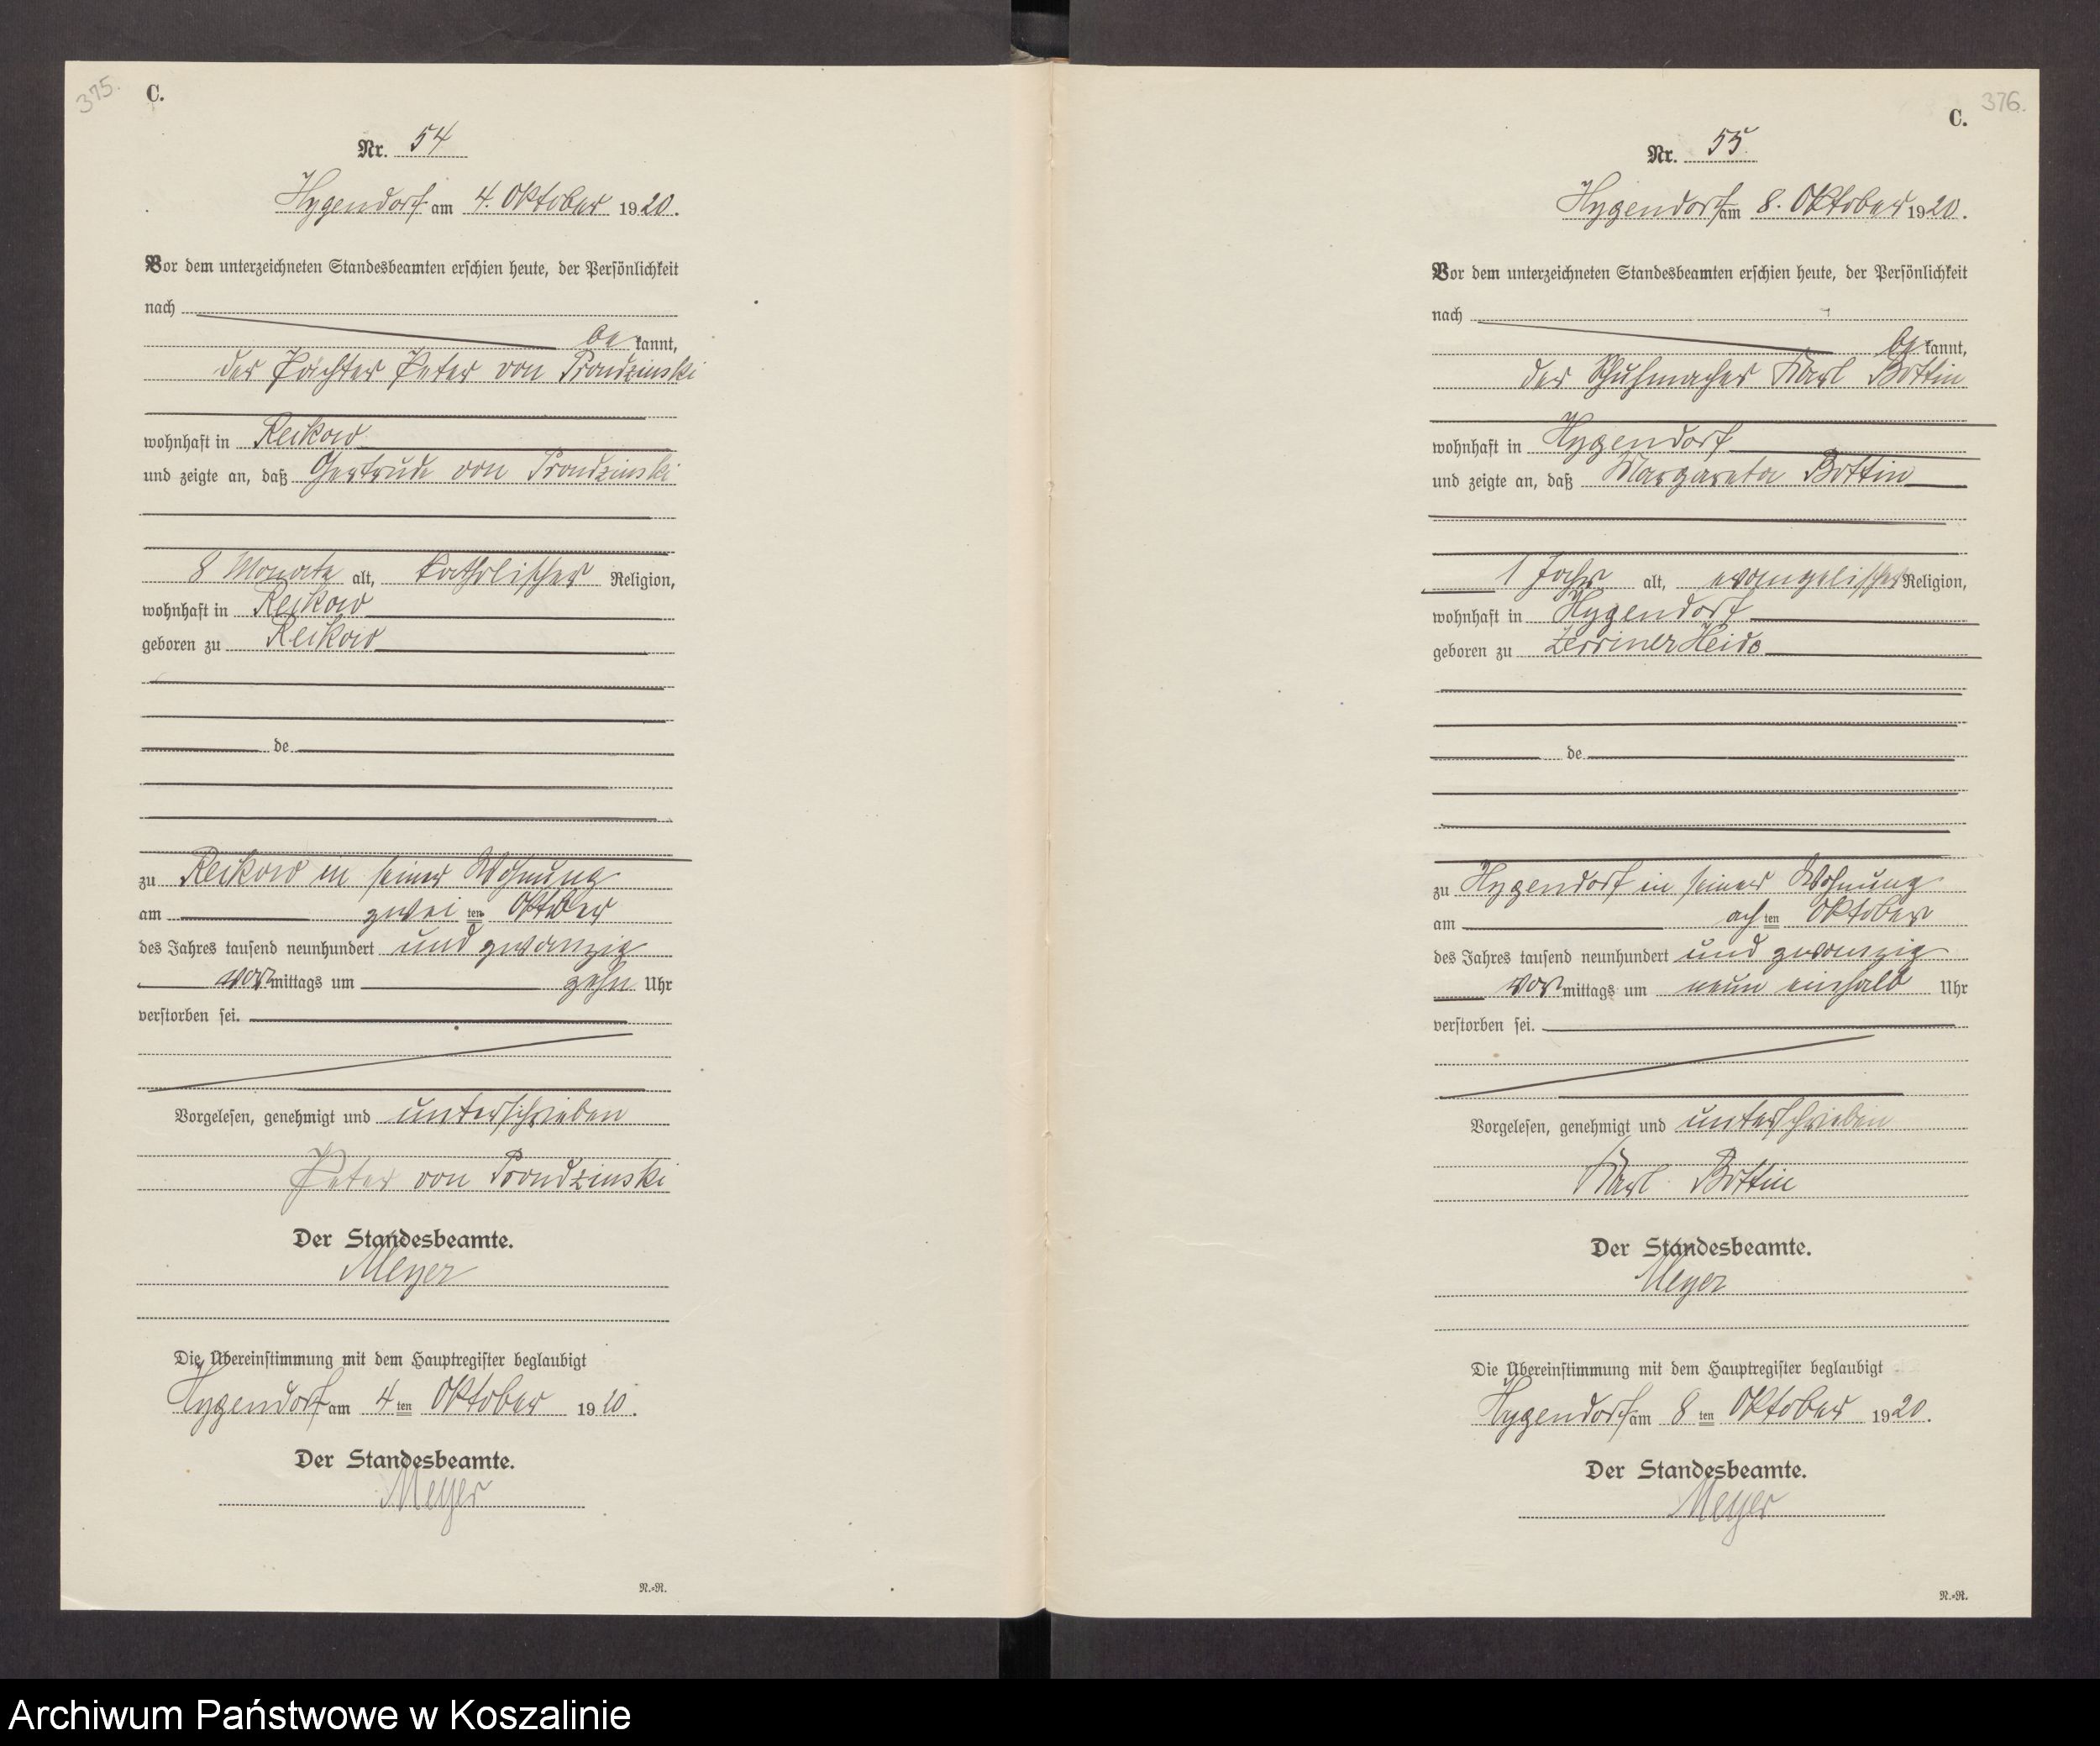 375.
C.
Nr. 54
Hygendorf am 4. Oktober 1920.
Vor dem unterzeichneten Standesbeamten erschien heute, der Persönlichkeit
nach
be kannt,
der Pächter Peter von Prondzinski
wohnhaft in Reikow
und zeigte an, daß Gertrude von Prondzinski
8 Monate alt, katholischer Religion,
wohnhaft in Reikow
geboren zu Reikow
de
zu Reikow in seiner Wohnung
am zwei ten Oktober
des Jahres tausend neunhundert und zwanzig
vor mittags um zehn Uhr
verstorben sei.
Vorgelesen, genehmigt und unterschrieben
Peter von Prondzinski
Der Standesbeamte.
Meyer
Die Übereinstimmung mit dem Hauptregister beglaubigt
Hygendorf am 4 ten Oktober 1920.
Der Standesbeamte.
Meyer
N.=R.
376.
C.
Nr. 55
Hygendorf am 8. Oktober 1920.
Vor dem unterzeichneten Standesbeamten erschien heute, der Persönlichkeit
nach
be kannt,
der Schuhmacher Karl Bottin
wohnhaft in Hygendorf
und zeigte an, daß Margareta Bottin
1 Jahr alt, evangelischer Religion,
wohnhaft in Hygendorf
geboren zu Zerriner Heide
de
zu Hygendorf in seiner Wohnung
am ach ten Oktober
des Jahres tausend neunhundert und zwanzig
vor mittags um neun einhalb Uhr
verstorben sei.
Vorgelesen, genehmigt und unterschrieben
Karl Bottin
Der Standesbeamte.
Meyer
Die Übereinstimmung mit dem Hauptregister beglaubigt
Hygendorf am 8 ten Oktober 1920.
Der Standesbeamte.
Meyer
N.=R.
Archiwum Państwowe w Koszalinie